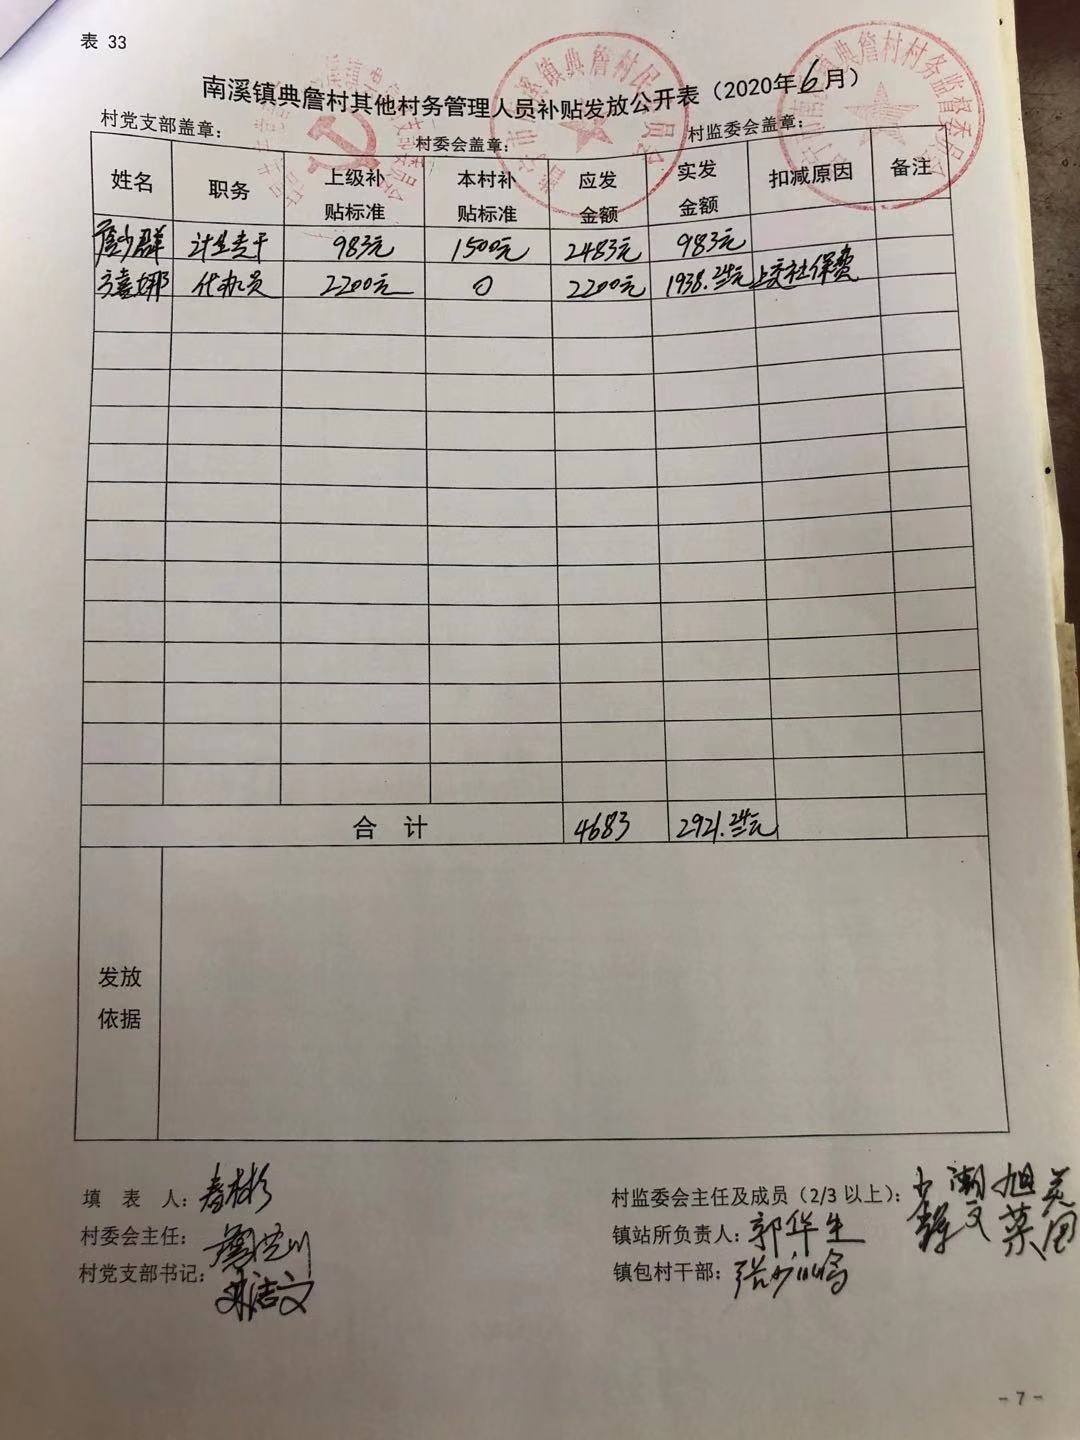 表 33
南溪镇典詹村其他村务管理人员补贴发放公开表（2020年6月）
村党支部盖章： 村委会盖章： 村监委会盖章：
姓名 职务 上级补贴标准 本村补贴标准 应发金额 实发金额 扣减原因 备注
詹少群 计生专干 983元 1500元 2483元 983元
方喜娜 代办员 2200元 0 2200元 1938.24元 上交社保费
合 计 4683 2921.24元
发放
依据
填 表 人：
村委会主任：
村党支部书记：
村监委会主任及成员（2/3 以上）：
镇站所负责人：郭华生
镇包村干部：
- 7 -